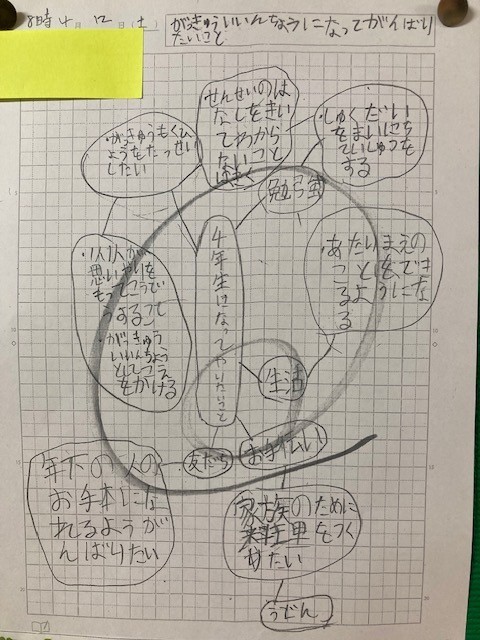 8時4月12日(土)
がっきゅういいんちょうになってがんばり
たいこと
せんせいのは
なしをきい
てわから
ないこと
はきく
・しゅくだい
をまいにち
ていしゅつを
する
・がっきゅうもくひ
ょうをたっせい
したい
勉強
4年生になってやりたいこと
あたりまえの
ことをでき
るようにな
る
思いやりを
もってこうで
うすること
・がっきゅう
いいんちょう
としてこえ
をかける
生活
友だち
お手伝い
年下の人の
お手本にな
れるようが
んばりたい
家族のために
料理をつく
りたい
うどん